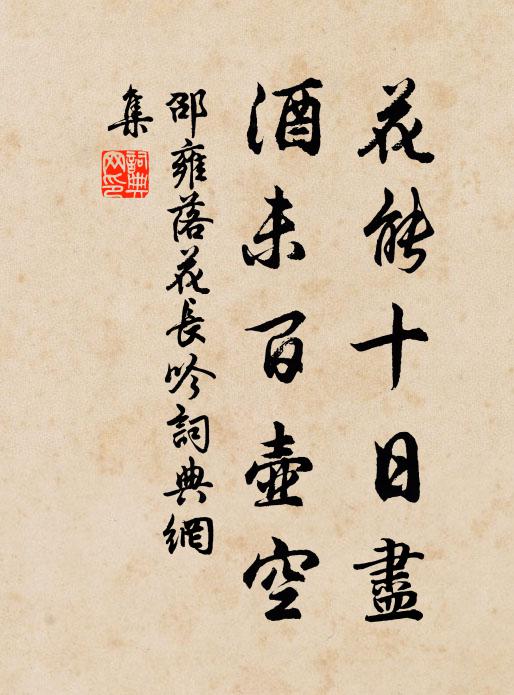 花能十日盡
酒未百壺空
邵雍落花長吟詞典網
集
詞典
网印